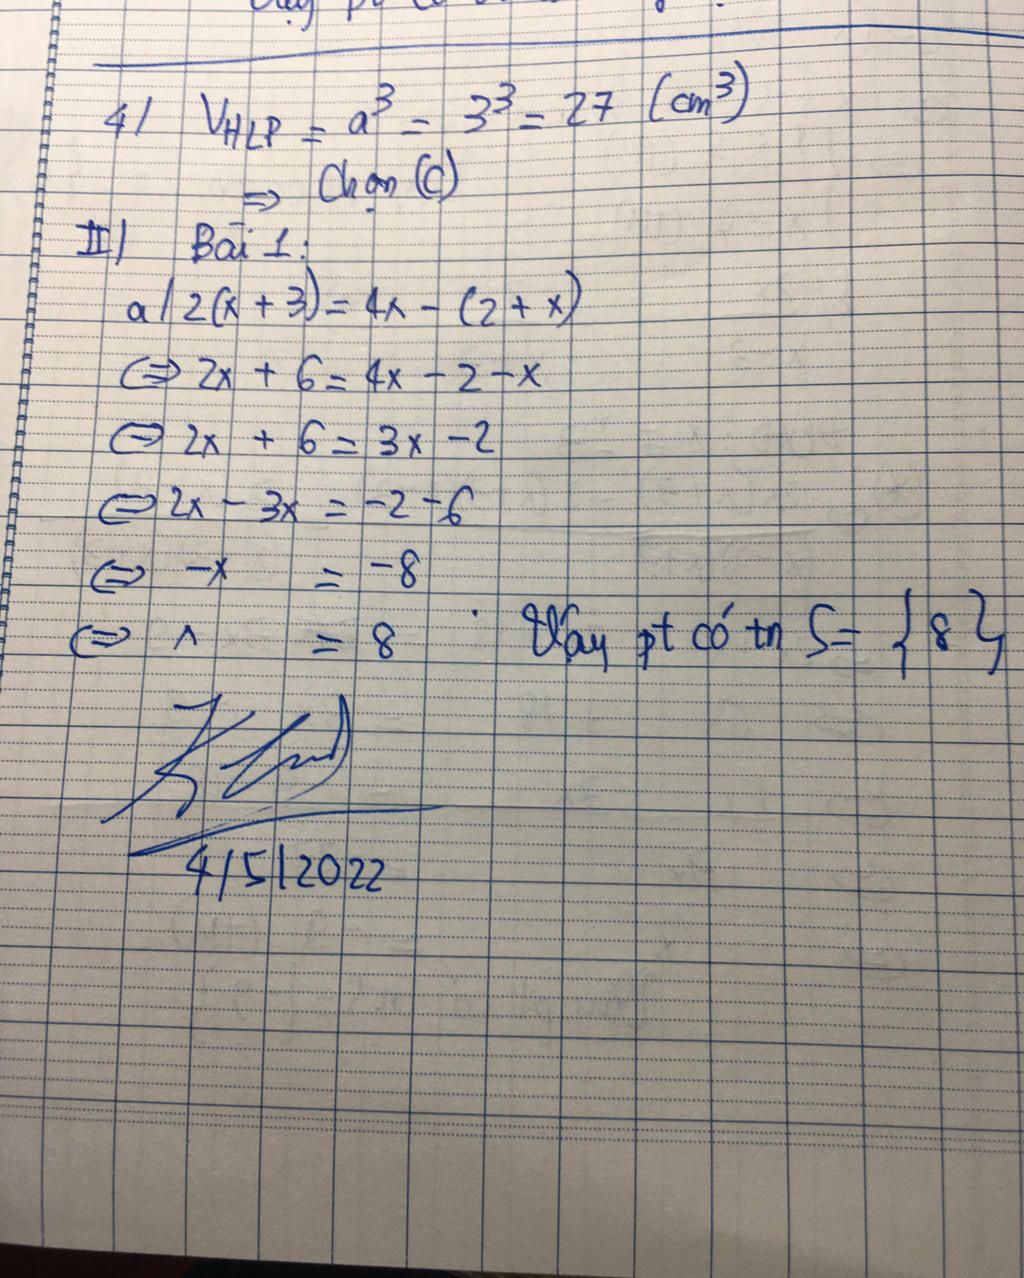 4/ V_HLP = a³ = 3³ = 27 (cm³)
⇒ Chọn (C)
II/ Bài 1:
a/ 2(x + 3) = 4x - (2 + x)
⇔ 2x + 6 = 4x - 2 - x
⇔ 2x + 6 = 3x - 2
⇔ 2x - 3x = -2 - 6
⇔ -x = -8
⇔ x = 8 Vậy pt có tn S = {8}
4/5/2022